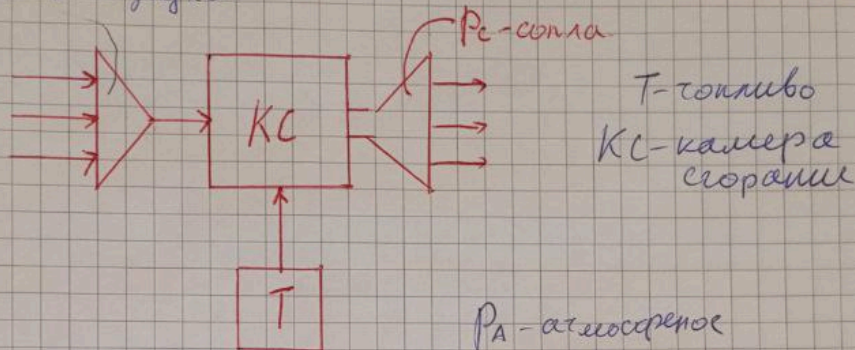 Pс-сопла
Т-топливо
КС
КС-камера
сгорания
Т
PА-атмосферное